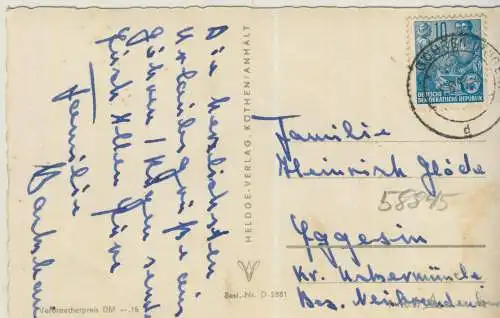 Die herzlichsten
Urlaubsgrüße aus
Göhren / Rügen sendet
Euch Allen Eure
Familie
HELDGE-VERLAG, KÖTHEN/ANHALT
Best.-Nr. D 2881
Verbraucherpreis DM -.15
10
DEUTSCHE
DEMOKRATISCHE REPUBLIK
d
Familie
Heinrich Glöde
58845
Eggesin
Kr. Ueckermünde
Bez. Neubrandenburg